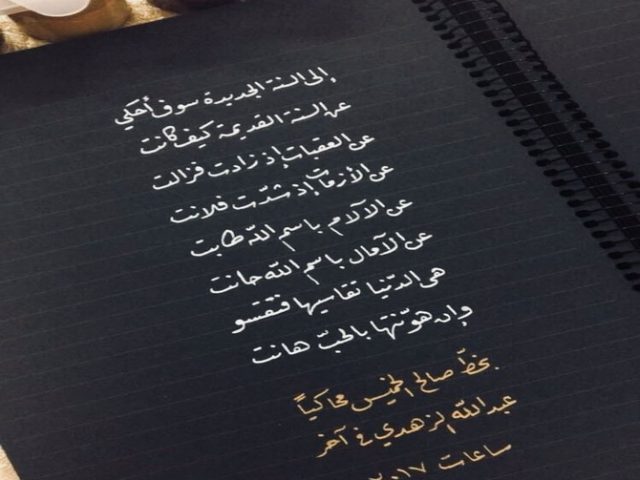 إلى السنة الجديدة سوف أحكي
عن السنة القديمة كيف كانت
عن العقبات إذ زادت فزالت
عن الأزمات إذ شدّت فلانت
عن الآلام باسم الله طابت
عن الآمال باسم الله حانت
هي الدّنيا تقاسيها فتقسو
وإن هوّنتها بالحبّ هانت
بخطّ صالح الخميس محاكياً
عبدالله الزهدي في آخر
ساعات ٢٠١٧